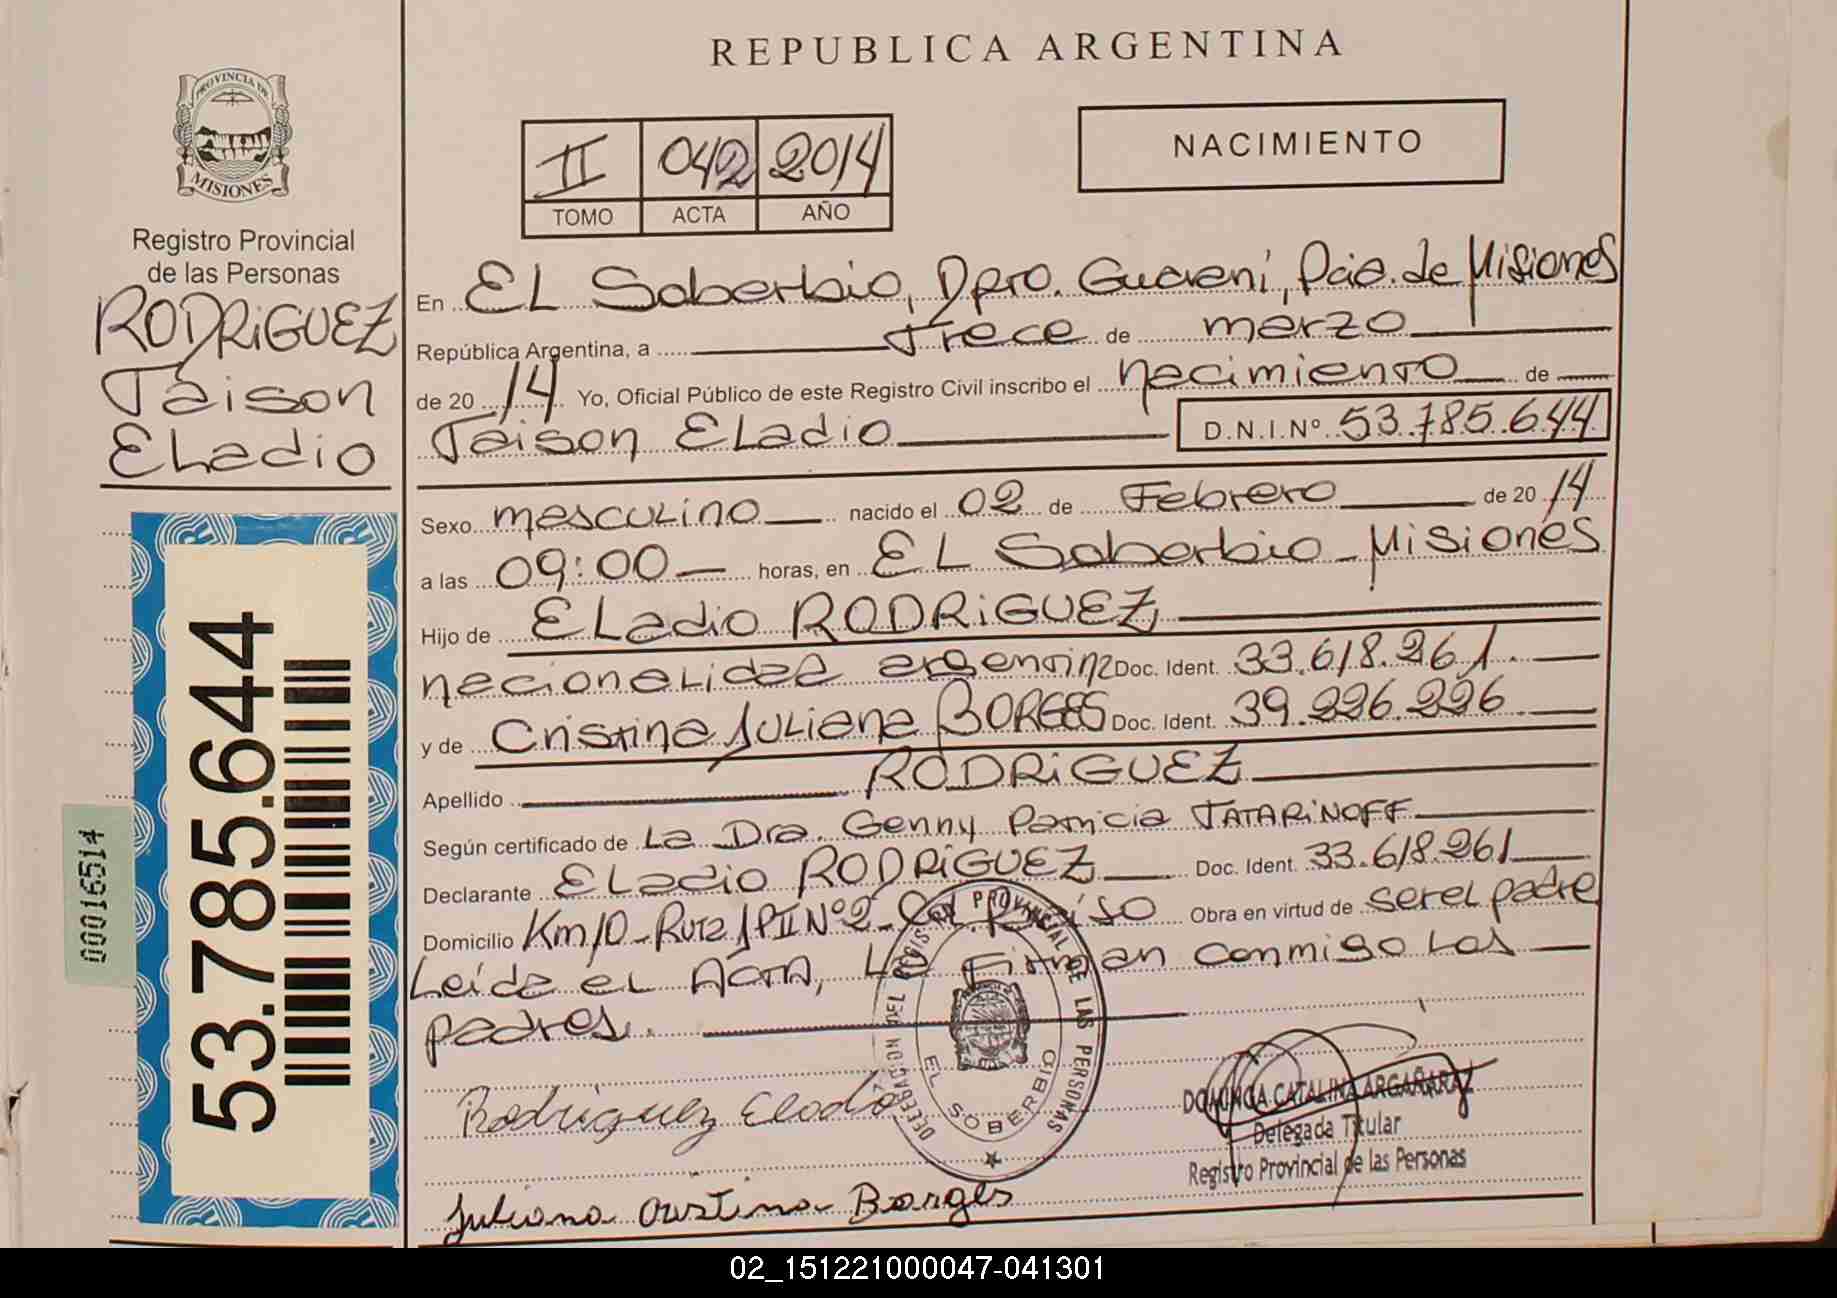 REPUBLICA ARGENTINA
PROVINCIA DE
MISIONES
Registro Provincial
de las Personas
RODRiGUEZ
Taison
ELadio
II 042 2014
TOMO ACTA AÑO
NACIMIENTO
En EL Soberbio, Dpto. Guaraní, Pcia. de Misiones
República Argentina, a Trece de marzo
de 20 14 Yo, Oficial Público de este Registro Civil inscribo el nacimiento de
Taison ELadio D.N.I.Nº 53.785.644
Sexo masculino nacido el 02 de Febrero de 20 14
a las 09:00 horas, en EL Soberbio - Misiones
Hijo de ELadio RODRiGUEZ
nacionaLidad argentina Doc. Ident. 33.618.261.
y de Cristina JuLiana BORGES Doc. Ident. 39.226.226
Apellido RODRiGUEZ
Según certificado de La Dra. Genny Patricia TATARiNOFF
Declarante ELadio RODRiGUEZ Doc. Ident. 33.618.261
Domicilio Km 10 - Ruta Nº2 - Obra en virtud de ser el padre
Leída el ACTA, La Firman conmigo Los
padres.
DELEGACION DEL REGISTRO PROVINCIAL DE LAS PERSONAS
EL SOBERBIO
Rodriguez Eladio
Juliana Cristina Borges
DOMINGA CATALINA ARGAÑARAZ
Delegada Titular
Registro Provincial de las Personas
53.785.644
00016514
02_151221000047-041301